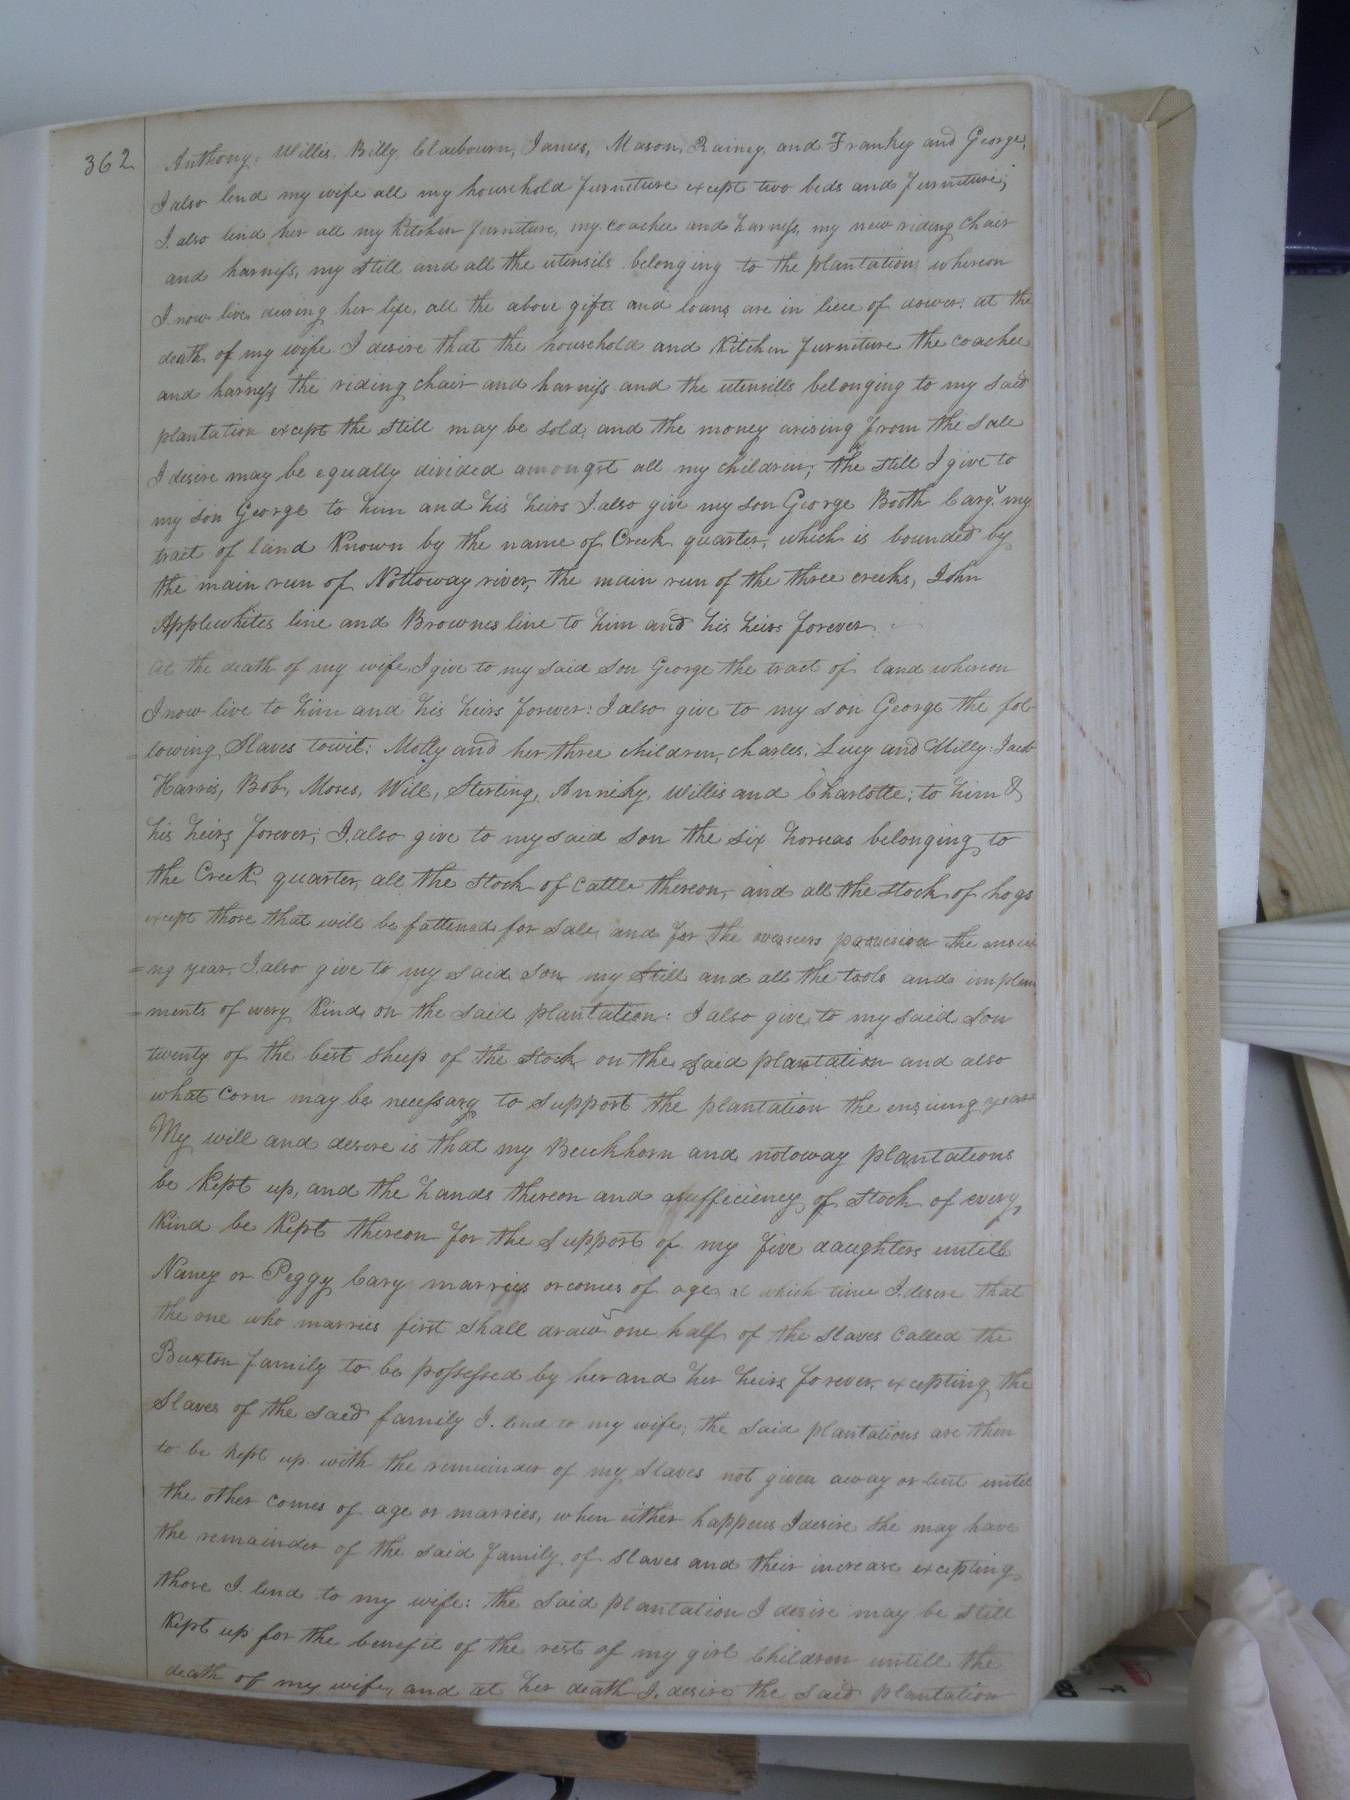 362
Anthony, Willis, Billy, Claibourn, James, Mason, Rainey, and Frankey and George,
I also lend my wife all my household furniture except two beds and furniture;
I also lend her all my kitchen furniture, my coachee and harness, my new riding chair
and harness, my still and all the utensils belonging to the plantation whereon
I now live during her life, all the above gifts and loans are in lieu of dower: at the
death of my wife I desire that the household and kitchen furniture the coachee
and harness the riding chair and harniss and the utensills belonging to my said
plantation except the still may be sold, and the money arising from the sale
I desire may be equally divided amongst all my children, the still I give to
my son George to him and his heirs I also give my son George Booth Cary my
tract of land known by the name of Creek quarter, which is bounded by
the main run of Nottoway river, the main run of the three creeks, John
Applewhites line and Brownes line to him and his heirs forever.
at the death of my wife, I give to my said son George the tract of land whereon
I now live to him and his heirs forever: I also give to my son George the fol
=lowing Slaves towit: Molly and her three children, Charles, Lucy and Milly: Jacob
Harris, Bob, Moses, Will, Sterling, Anniky, Willis and Charlotte; to him &
his heirs forever; I also give to my said son the six horseas belonging to
the Creek quarter, all the stock of cattle thereon, and all the stock of hogs
except those that will be fattened for sale, and for the overseers provision the ensui
=ng year. I also give to my said son my still and all the tools and implem
=ments of every kind on the said plantation: I also give to my said son
twenty of the best sheep of the stock on the said plantation and also
what corn may be necessary to support the plantation the ensiung year
My will and desire is that my Beuckhorn and notoway plantations
be kept up, and the hands thereon and a sufficiency of stock of every
kind be kept thereon for the support of my five daughters untill
Nancy or Peggy Cary marries or comes of age at which time I desire that
the one who marries first shall draw one half of the slaves called the
Buxton family to be possessed by her and her heirs forever, excepting the
Slaves of the said family I lend to my wife; the said plantations are then
to be kept up with the remainder of my slaves not given away or lent until
the other comes of age or marries, when either happens I desire she may have
the remainder of the said family of slaves and their increase excepting
those I lend to my wife: the said plantation I desire may be still
kept up for the benefit of the rest of my girl children untill the
death of my wife, and at her death I desire the said plantation